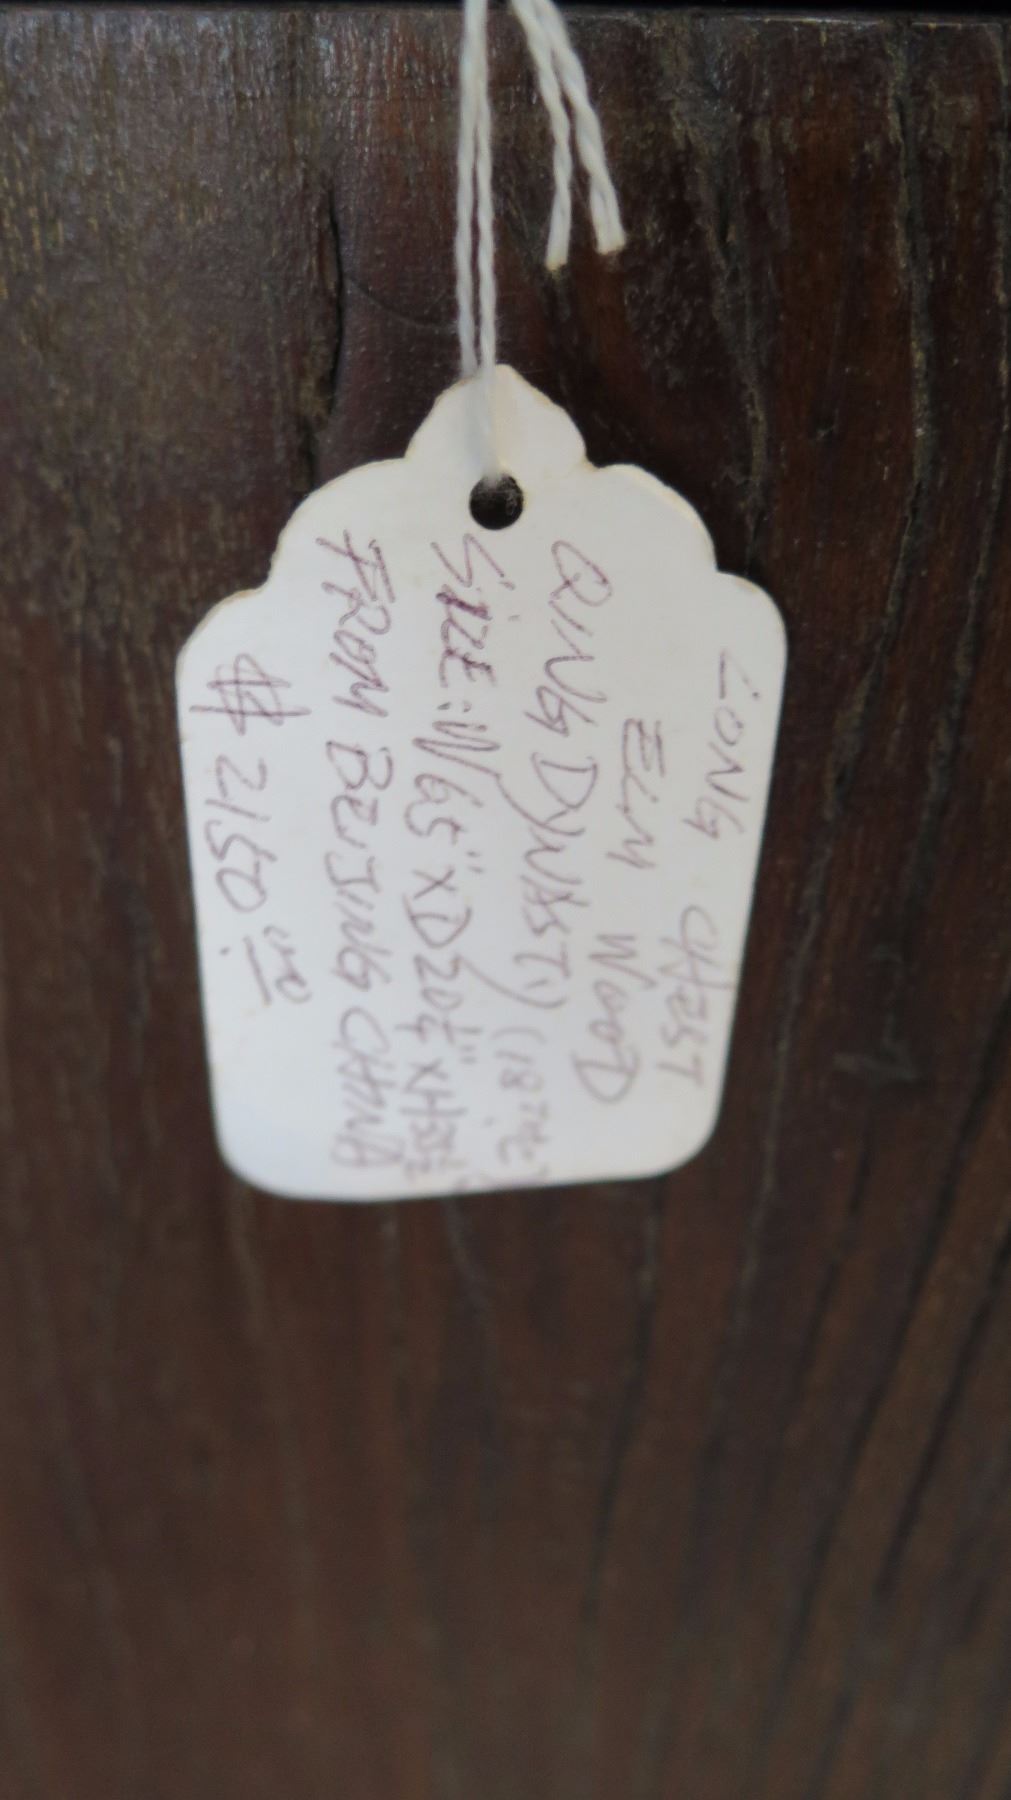 LONG CHEST
ELM WOOD
QING DYNASTY (18TH C
SIZE: W65" X D20¼" X H35½
FROM BEIJING CHINA
$2150.00